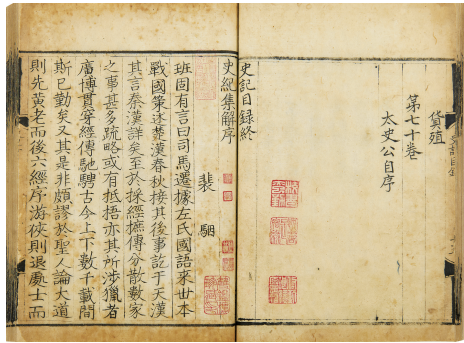 貨殖
第七十卷
太史公自序
史記目錄終
史記集解序
裴駰
班固有言曰司馬遷據左氏國語采世本
戰國策述楚漢春秋接其後事訖于天漢
其言秦漢詳矣至於採經摭傳分散數家
之事甚多疏略或有抵捂亦其所涉獵者
廣博貫穿經傳馳騁古今上下數千載間
斯已勤矣又其是非頗謬於聖人論大道
則先黃老而後六經序游俠則退處士而